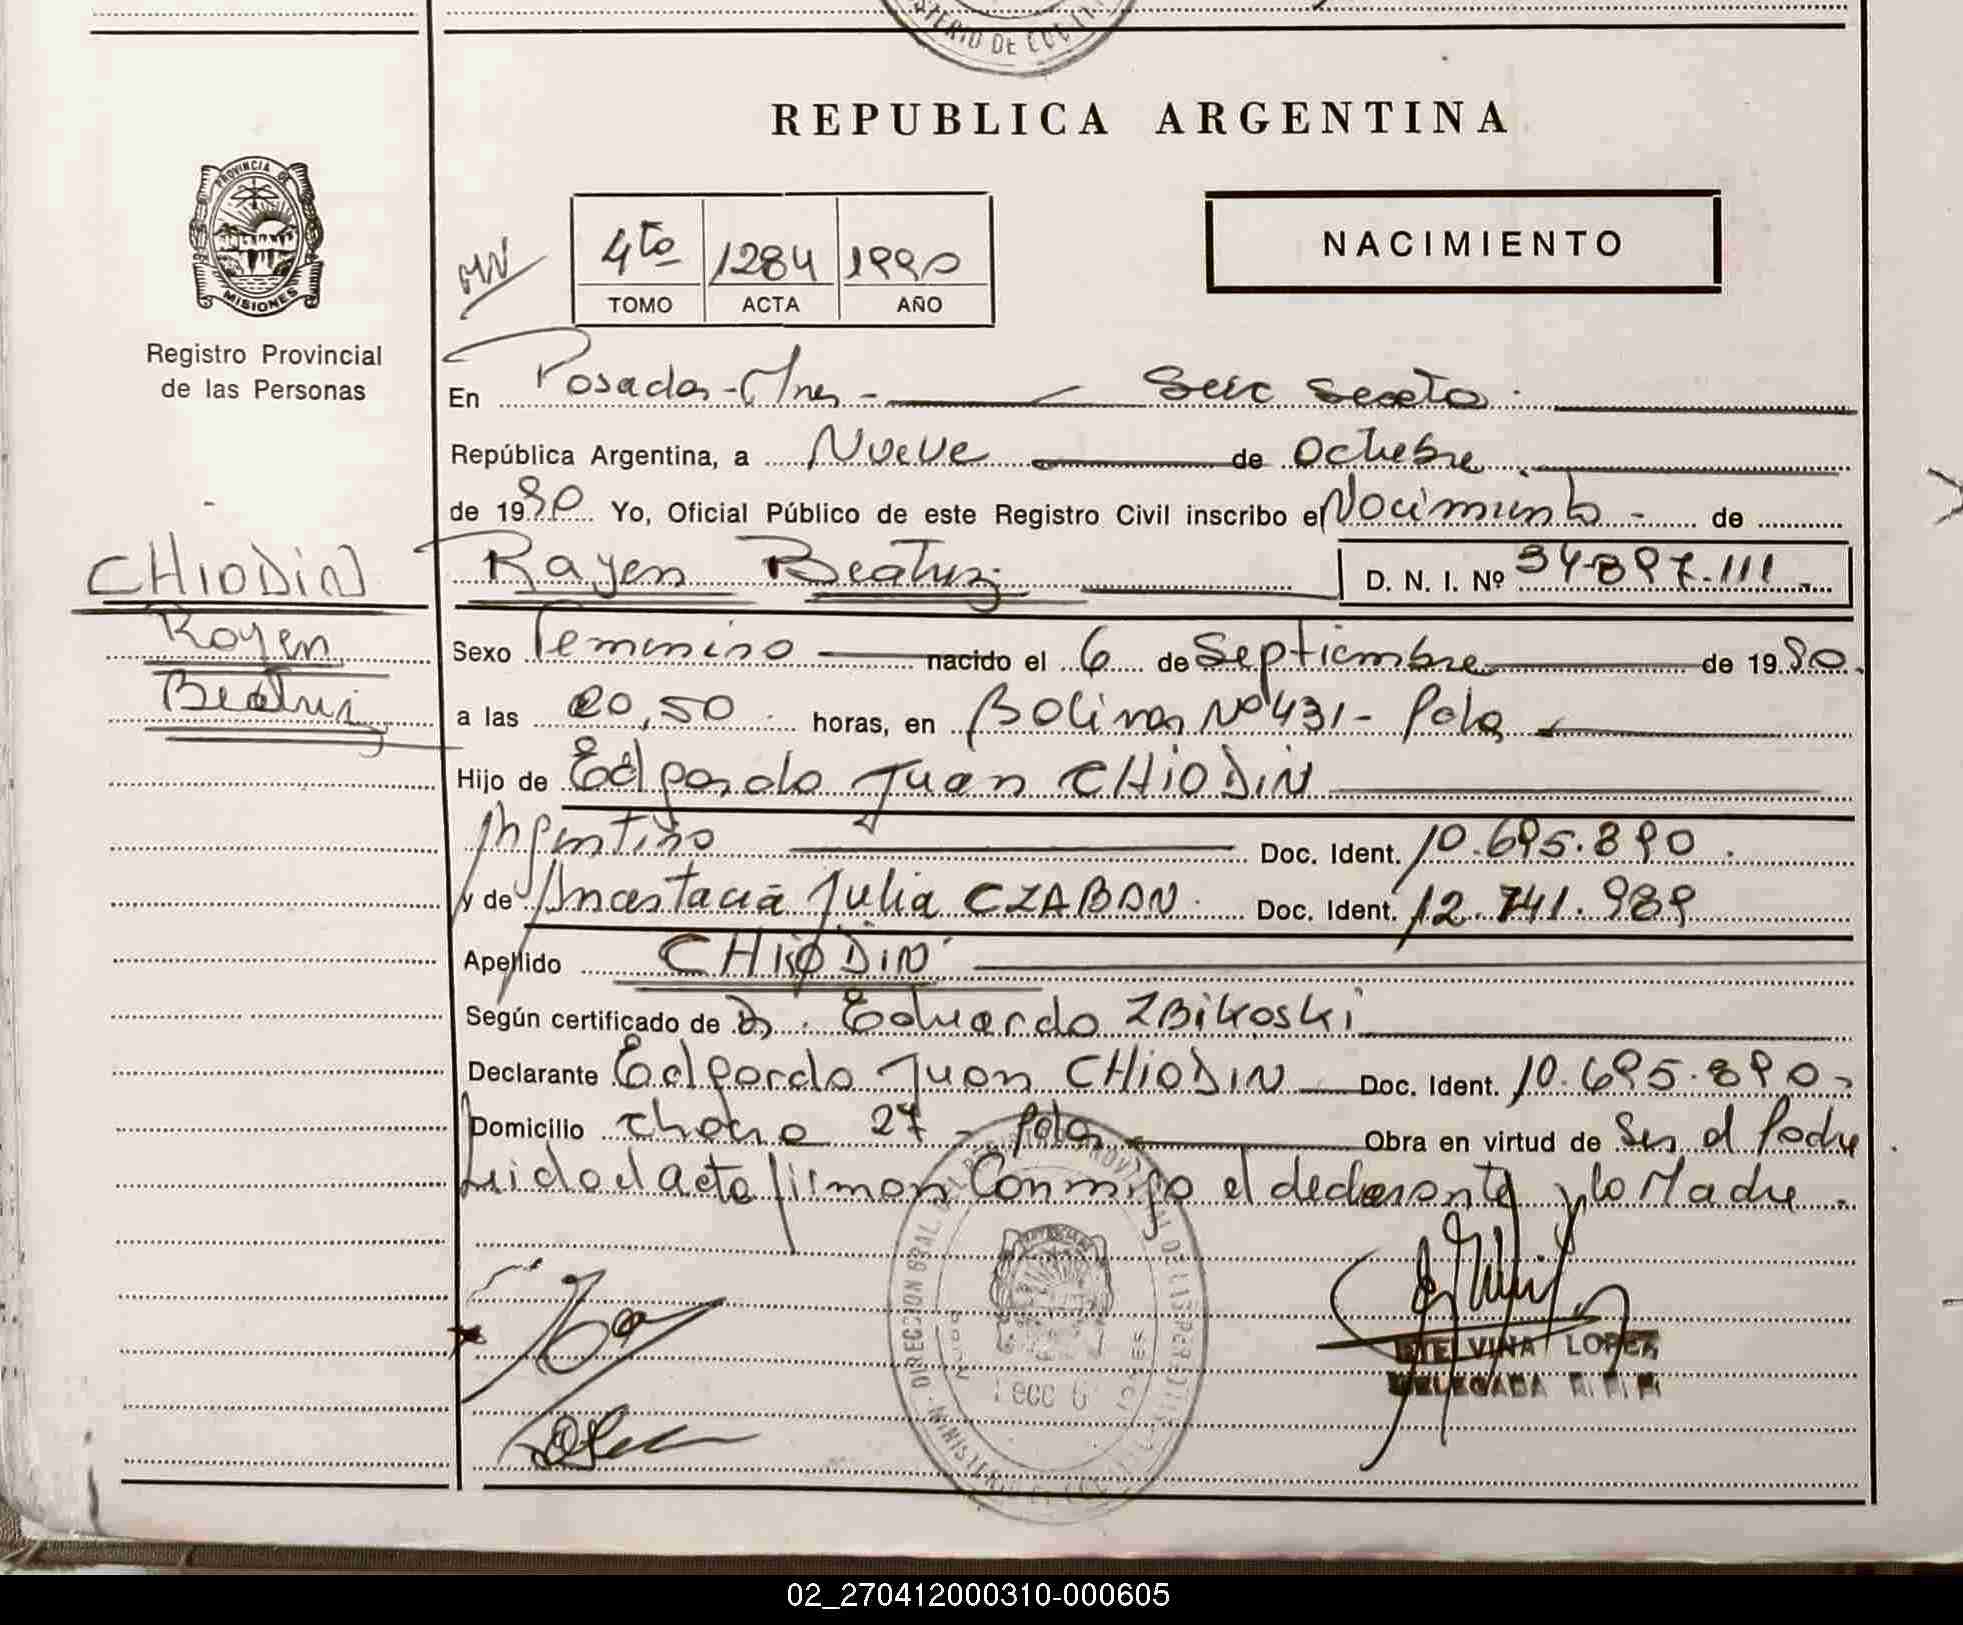 MINISTERIO DE
REPUBLICA ARGENTINA
PROVINCIA DE
MISIONES
Registro Provincial
de las Personas
4to 1284 1990
TOMO ACTA AÑO
NACIMIENTO
En Posadas - Mnes - Secc Sexta.
República Argentina, a Nueve de Octubre
de 1990 Yo, Oficial Público de este Registro Civil inscribo el Nacimiento - de
CHIODIN
Rayen Beatriz D. N. I. Nº 34.897.111
Rayen
Beatriz
Sexo Femenino nacido el 6 de Septiembre de 1990.
a las 20,50 horas, en Bolivar Nº 431 - Pdas
Hijo de Edgardo Juan CHIODIN
Argentino Doc. Ident. 10.695.890.
y de Anastacia Julia CZABAN. Doc. Ident. 12.741.989
Apellido CHIODIN
Según certificado de Dr. Eduardo ZBIKOSKI
Declarante Edgardo Juan CHIODIN Doc. Ident. 10.695.890-
Domicilio Chaco 27 - Pdas Obra en virtud de Ser el Padre
Leida el acta firman Conmigo el declarante y la Madre.
ETELVINA LOPEZ
DELEGADA
02_270412000310-000605